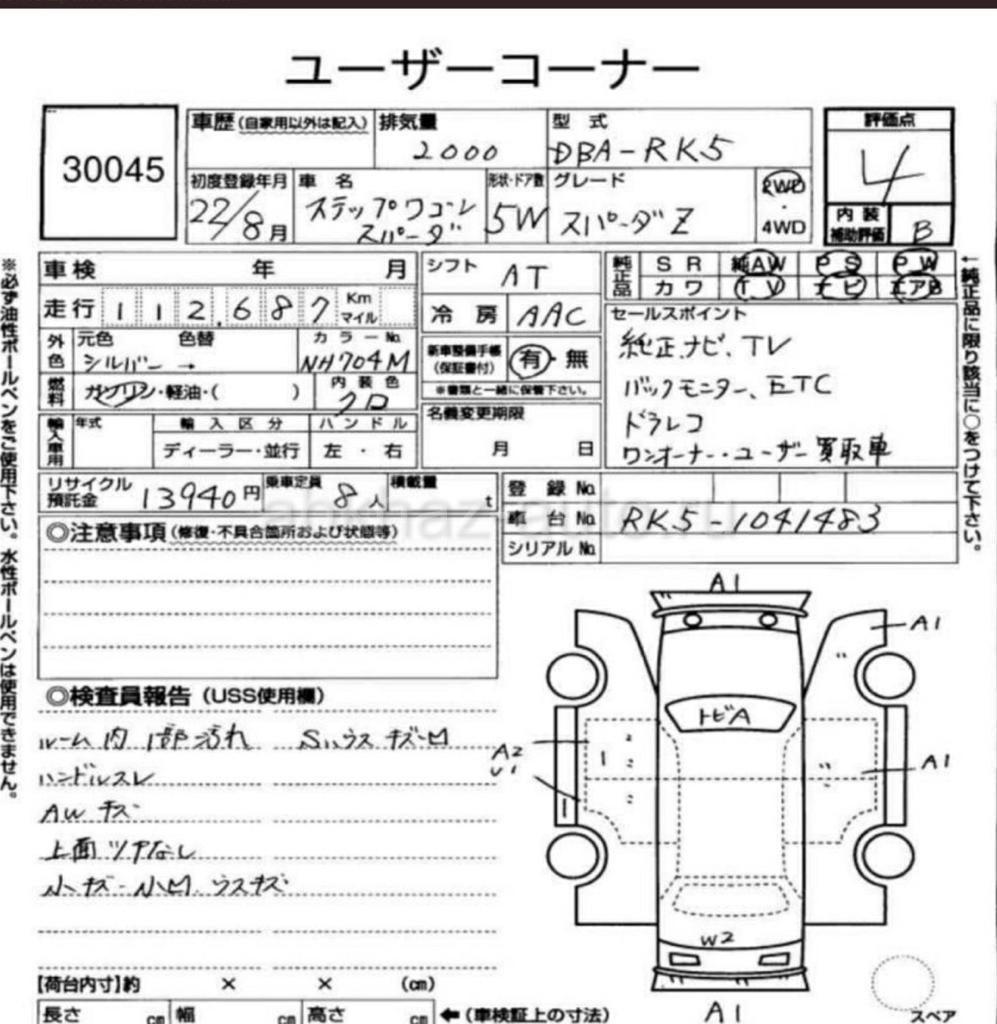 ユーザーコーナー
30045
車歴(自家用以外は記入)
排気量
2000
型 式
DBA-RK5
評価点
4
初度登録年月
22/8月
車 名
ステップワゴン
スパーダ
形状・ドア数
5W
グレード
スパーダZ
2WD
・
4WD
内 装
補助評価
B
車検 年 月
シフト
AT
純正品
SR 純AW PS PW
カワ TV ナビ エアB
走行 112,687 Km
マイル
冷 房
AAC
セールスポイント
純正ナビ、TV
バックモニター、ETC
ドラレコ
ワンオーナー・ユーザー買取車
外色
元色 色替
シルバー →
カラーNo.
NH704M
新車整備手帳
(保証書付)
有・無
※書類と一緒に保管下さい。
燃料
ガソリン・軽油・( )
内装色
クロ
名義変更期限
月 日
輸入車用
年式
輸入区分
ディーラー・並行
ハンドル
左・右
リサイクル
預託金
13940円
乗車定員
8人
積載量
t
登録No.
車台No.
RK5-1041483
シリアルNo.
ahkhaz-auto.ru
◎注意事項(修復・不具合箇所および状態等)
◎検査員報告(USS使用欄)
ルーム内1部汚れ Sハウスキズ凹
ハンドルスレ
AWキズ
上面ツヤなし
小キズ・小凹 ウスキズ
A1
A1
トビA
A2
U1
A1
W2
A1
スペア
【荷台内寸】約 × × (cm)
長さ cm 幅 cm 高さ cm
←(車検証上の寸法)
※必ず油性ボールペンをご使用下さい。水性ボールペンは使用できません。
←純正品に限り該当に○をつけて下さい。